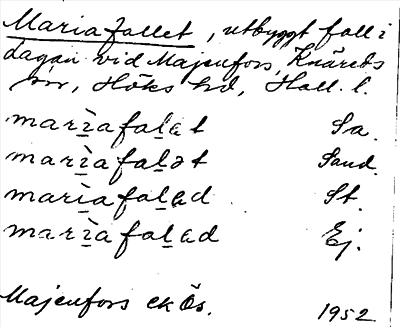 Mariafallet, utbyggt fall i
Lagan vid Majenfors, Knäreds
sn, Höks hd, Hall. l.
marìafalat Sa.
marìafalət Sand.
marìafalad St.
marìafalad Ej.
Majenfors ek Ös. 1952